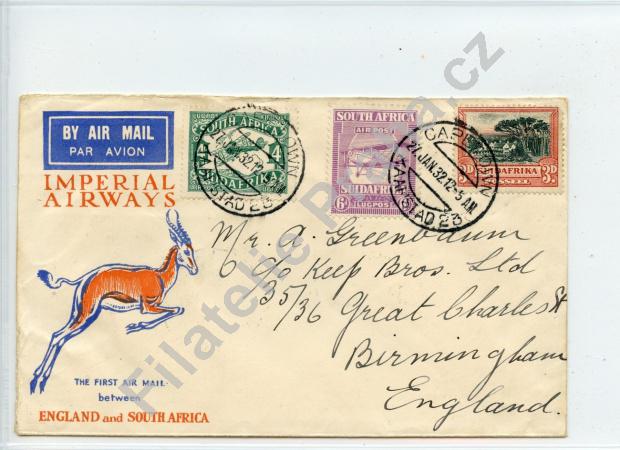 BY AIR MAIL
PAR AVION
IMPERIAL
AIRWAYS
THE FIRST AIR MAIL
between
ENGLAND and SOUTH AFRICA
SOUTH AFRICA
4
SUIDAFRIKA
SOUTH AFRICA
AIR POST
SUIDAFRIKA
6D
LUGPOST
SUIDAFRIKA
3D
CAPE TOWN
27 JAN.32.12-5 AM.
KAAPSTAD 23
Mr. A. Greenbaum
c/o Keep Bros. Ltd
35/36 Great Charles St
Birmingham
England.
Filatelic
cz